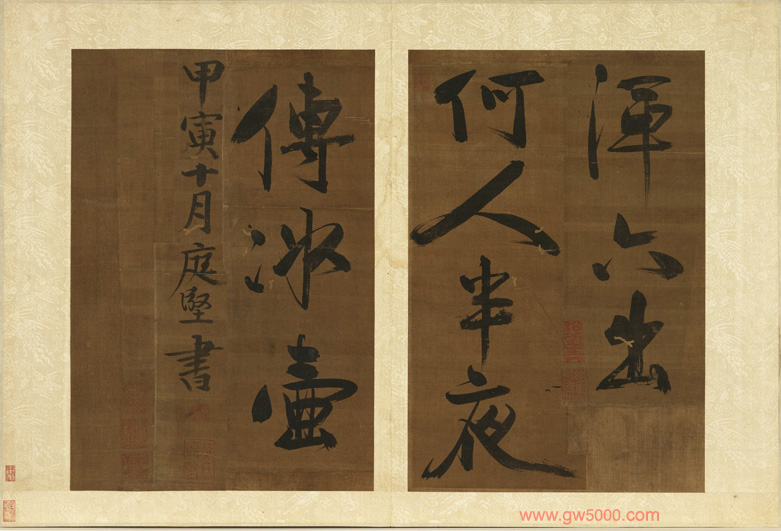 渾六出
何人半夜
傳冰壺
甲寅十月庭堅書
www.gw5000.com